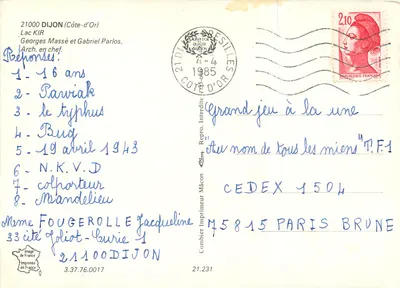 21000 DIJON (Côte-d'Or)
Lac KIR
Georges Massé et Gabriel Parlos,
Arch. en chef.
Réponses:
1 - 16 ans
2 - Pawiak
3 - le typhus
4 - Bug
5 - 19 avril 1943
6 - N.K.V.D
7 - colporteur
8 - Mandelieu
Mme FOUGEROLLE Jacqueline
33 cité Joliot-Curie 1
21100 DIJON
Image de France
Imprimée en France
3.37.76.0017
21.231
Combier Imprimeur Mâcon
Repro. Interdite
21 DIJON
4-4
1985
CÔTE D'OR
2,10
REPUBLIQUE FRANÇAISE
Grand jeu à la une
"Au nom de tous les miens" T.F.1
CEDEX 1504
75815 PARIS BRUNE